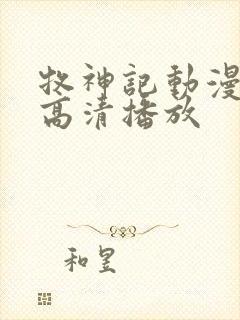 牧神記動漫
高清播放
和昱